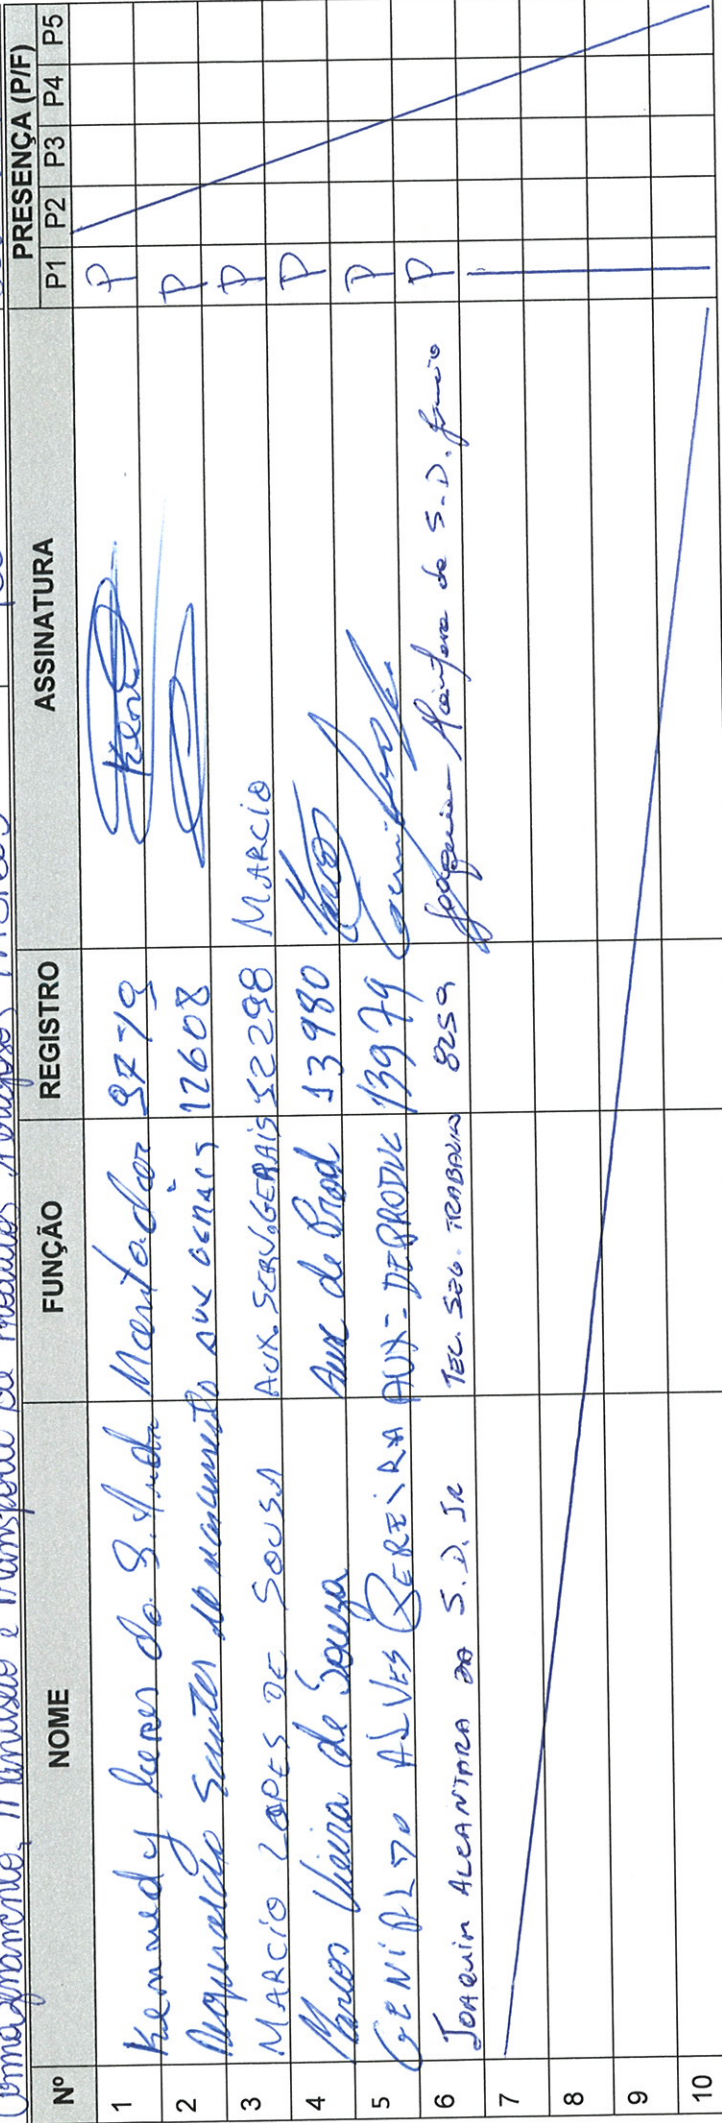 Armazenamento, Manuseio e transporte de Produtos Perigosos
Nº NOME FUNÇÃO REGISTRO ASSINATURA PRESENÇA (P/F)
P1 P2 P3 P4 P5
1 Kennedy do S. Montador 9779 P
2 Reginaldo Santos do nascimento AUX GERAIS 12608 P
3 MARCIO LOPES DE SOUSA AUX. SERV. GERAIS 12298 MARCIO P
4 Marcos Vieira de Souza Aux de Prod 13980 P
5 GENIALDO ALVES PEREIRA AUX - DE PRODUC 13979 P
6 JOAQUIM ALCANTARA DA S. D. JR TEC. SEG. TRABALHO 8259 Joaquim Alcantara da S. D. Junior P
7
8
9
10